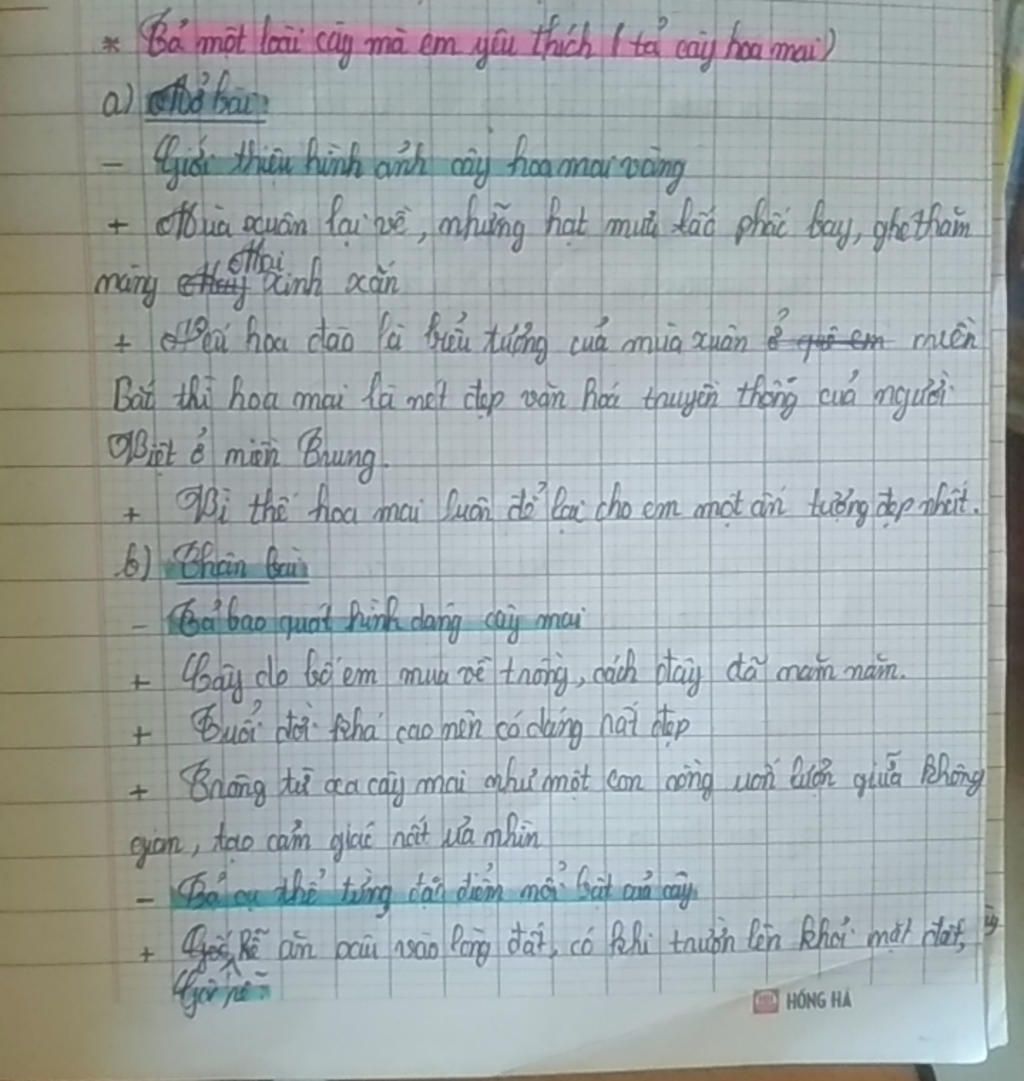 * Tả một loài cây mà em yêu thích ( tả cây hoa mai)
a) Mở bài:
- Giới thiệu hình ảnh cây hoa mai vàng
+ Mùa xuân lại về, những hạt mưa lắc phắc bay, ghé thăm
nàng Mai xinh xắn
+ Nếu hoa đào là biểu tượng của mùa xuân ở quê em miền
Bắc thì hoa mai là nét đẹp văn hoá truyền thống của người
Việt ở miền Trung.
+ Vì thế hoa mai luôn để lại cho em một ấn tượng đẹp nhất.
b) Thân bài
- Tả bao quát hình dáng cây mai
+ Cây do bố em mua về trồng, cách đây đã năm năm.
+ Tuổi đời khá cao nên có dáng rất đẹp
+ Trông từ xa cây mai như một con rồng uốn lượn giữa không
gian, tạo cảm giác rất ưa nhìn
- Tả cụ thể từng đặc điểm nổi bật của cây
+ Rễ ăn sâu vào lòng đất, có khi trườn lên khỏi mặt đất,
HỒNG HÀ